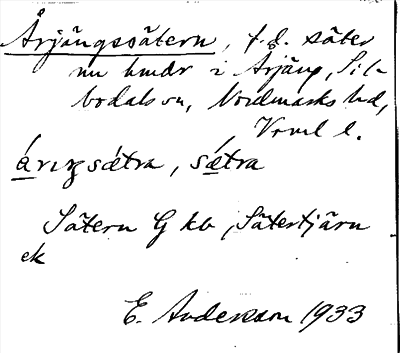 Årjängssätern, f.d. säter
nu hmdr i Årjäng, Sil-
bodals sn, Nordmarks hd,
Vrml l.
sǽtra
Sätern G kb, Sätertjärn
ek
E. Anderson 1933